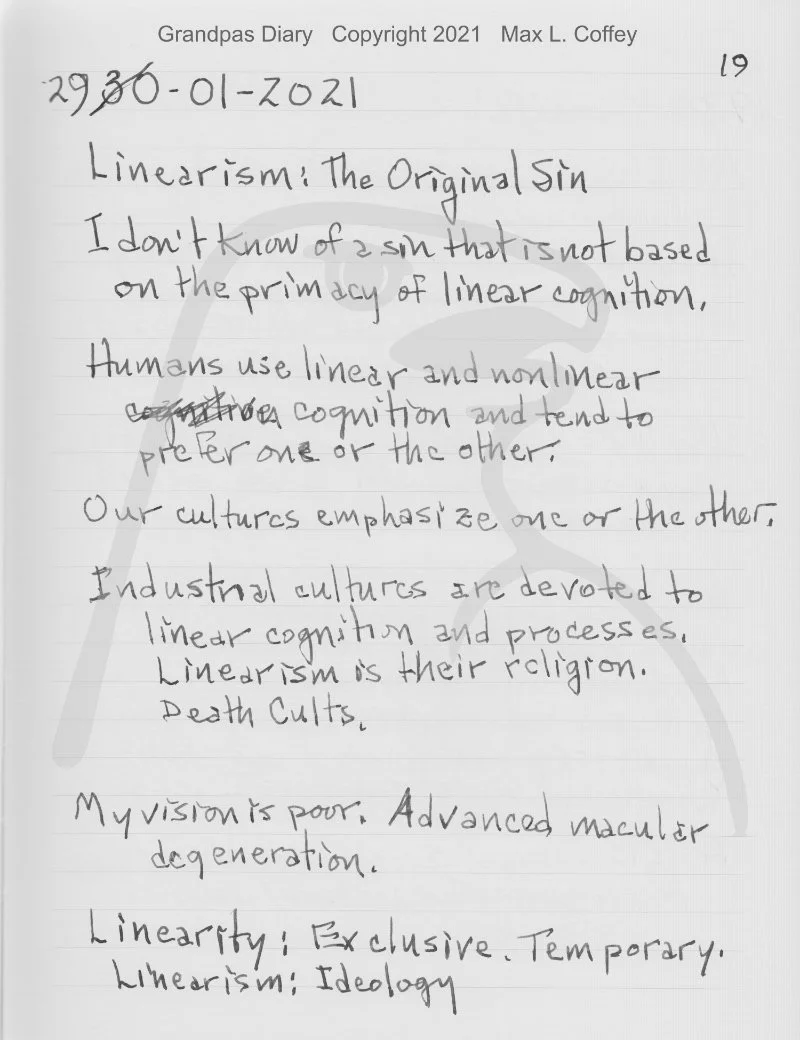 Grandpas Diary Copyright 2021 Max L. Coffey
19
29 30-01-2021
Linearism: The Original Sin
I don't know of a sin that is not based
on the primacy of linear cognition.
Humans use linear and nonlinear
cognitive cognition and tend to
prefer one or the other.
Our cultures emphasize one or the other.
Industrial cultures are devoted to
linear cognition and processes.
Linearism is their religion.
Death Cults.
My vision is poor. Advanced macular
degeneration.
Linearity: Exclusive. Temporary.
Linearism: Ideology